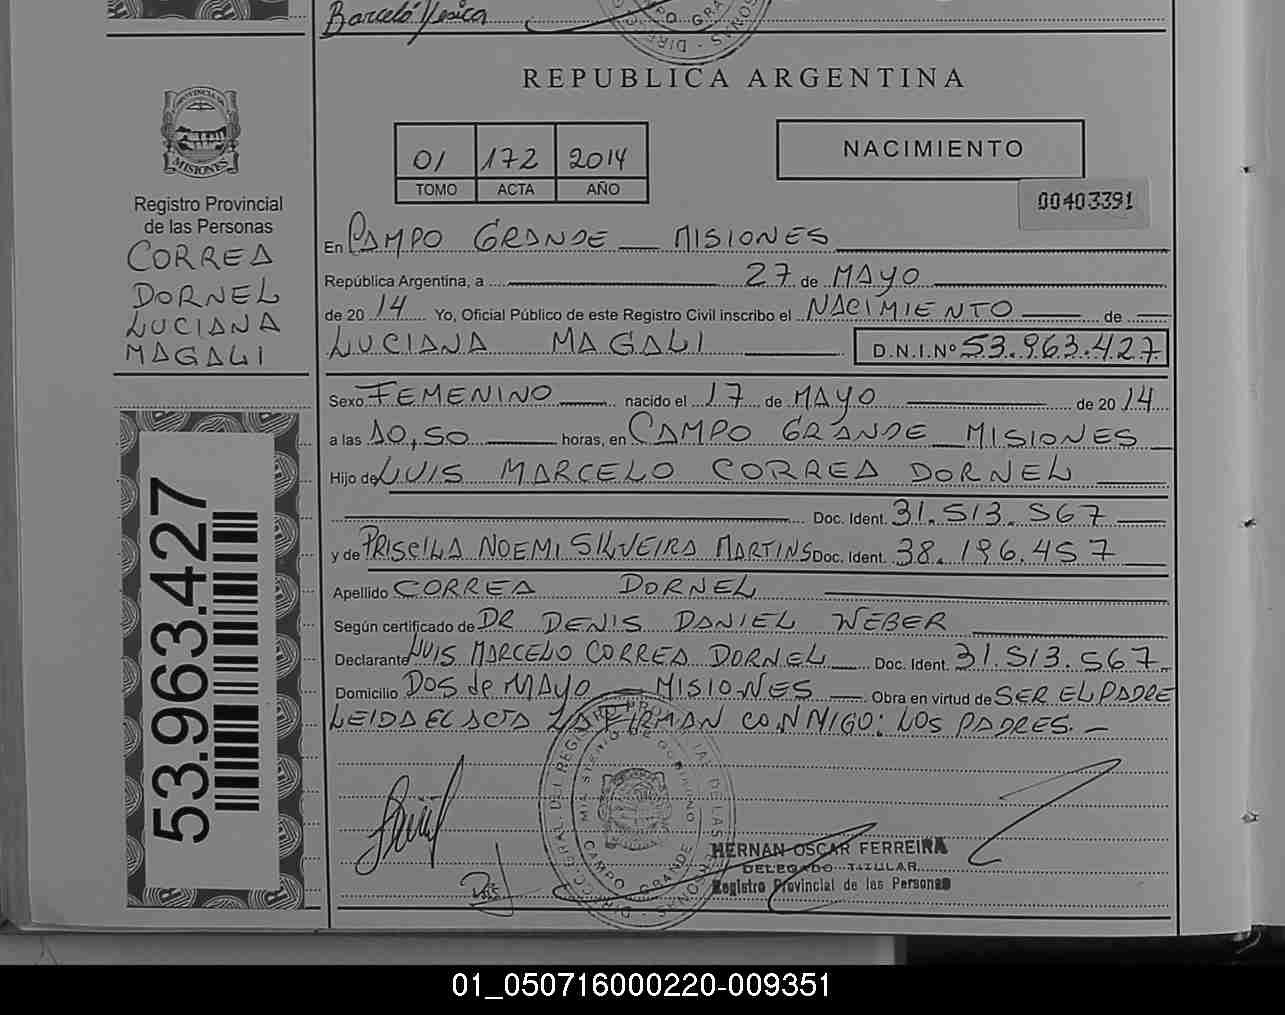 Barceló Yesica
REPUBLICA ARGENTINA
PROVINCIA DE
MISIONES
Registro Provincial
de las Personas
CORREA
DORNEL
LUCIANA
MAGALI
01 172 2014
TOMO ACTA AÑO
NACIMIENTO
00403391
En CAMPO GRANDE MISIONES
República Argentina, a 27 de MAYO
de 2014 Yo, Oficial Público de este Registro Civil inscribo el NACIMIENTO de
LUCIANA MAGALI D.N.I.Nº 53.963.427
Sexo FEMENINO nacido el 17 de MAYO de 2014
a las 10,50 horas, en CAMPO GRANDE MISIONES
Hijo de LUIS MARCELO CORREA DORNEL
Doc. Ident. 31.513.567
y de PRISCILA NOEMI SILVEIRA MARTINS Doc. Ident. 38.196.457
Apellido CORREA DORNEL
Según certificado de DR DENIS DANIEL WEBER
Declarante LUIS MARCELO CORREA DORNEL Doc. Ident. 31.513.567
Domicilio DOS de MAYO MISIONES Obra en virtud de SER EL PADRE
LEIDA EL ACTA LA FIRMAN CONMIGO: LOS PADRES.
53.963.427
CAMPO GRANDE
HERNAN OSCAR FERREIRA
DELEGADO TITULAR
Registro Provincial de las Personas
01_050716000220-009351